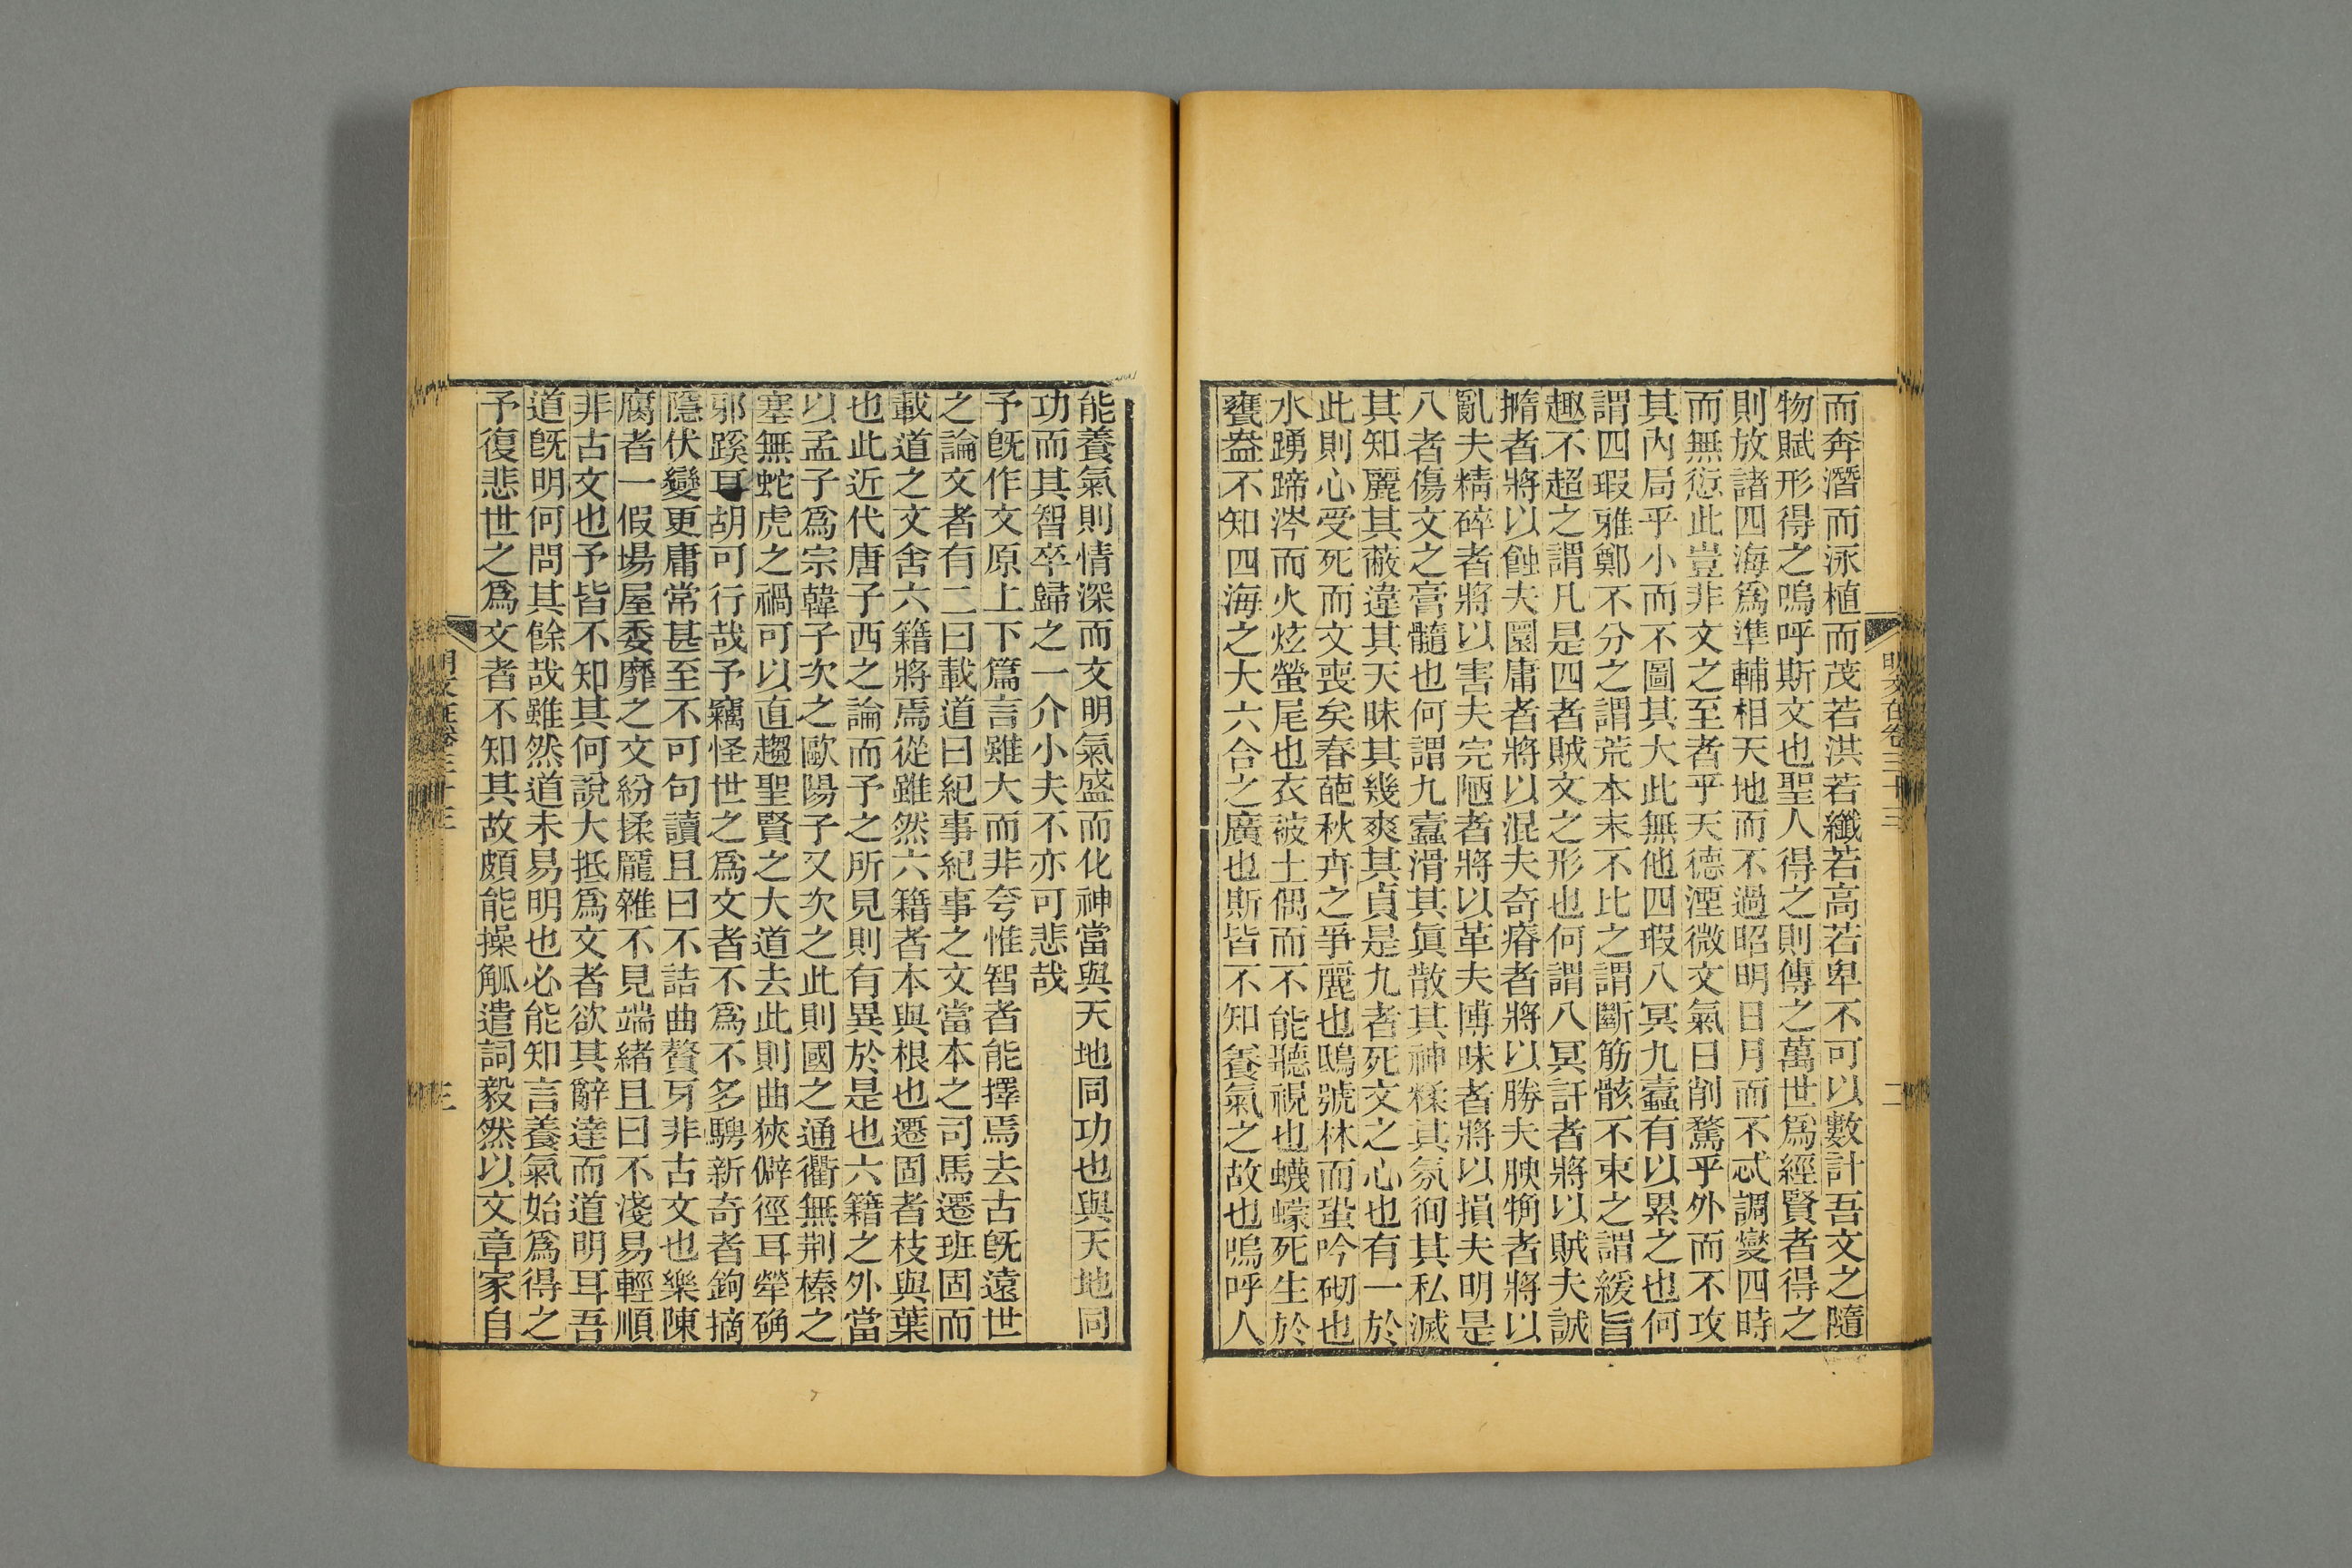 而奔潛而泳植而茂若洪若纖若高若卑不可以數計吾文之隨
物賦形得之嗚呼斯文也聖人得之則傳之萬世爲經賢者得之
則放諸四海爲準輔相天地而不過昭明日月而不忒調燮四時
而無愆此豈非文之至者乎天德湮微文氣日削騖乎外而不攻
其內局乎小而不圖其大此無他四瑕八冥九蠹有以累之也何
謂四瑕雅鄭不分之謂荒本末不比之謂斷筋骸不束之謂緩旨
趣不超之謂凡是四者賊文之形也何謂八冥訐者將以賊夫誠
撱者將以蝕夫圜庸者將以混夫奇瘠者將以勝夫腴觕者將以
亂夫精碎者將以害夫完陋者將以革夫博昧者將以損夫明是
八者傷文之膏髓也何謂九蠹滑其眞散其神糅其氛徇其私滅
其知麗其蔽違其天昧其幾爽其貞是九者死文之心也有一於
此則心受死而文喪矣春葩秋卉之爭麗也鴟號林而蛩吟砌也
水踴蹄涔而火炫螢尾也衣被土偶而不能聽視也蠛蠓死生於
甕盎不知四海之大六合之廣也斯皆不知養氣之故也嗚呼人
明文在卷三十三
二
能養氣則情深而文明氣盛而化神當與天地同功也與天地同
功而其智卒歸之一介小夫不亦可悲哉
予旣作文原上下篇言雖大而非夸惟智者能擇焉去古旣遠世
之論文者有二曰載道曰紀事紀事之文當本之司馬遷班固而
載道之文舍六籍將焉從雖然六籍者本與根也遷固者枝與葉
也此近代唐子西之論而予之所見則有異於是也六籍之外當
以孟子爲宗韓子次之歐陽子又次之此則國之通衢無荆榛之
塞無蛇虎之禍可以直趨聖賢之大道去此則曲狹僻徑耳犖确
邪蹊耳胡可行哉予竊怪世之爲文者不爲不多騁新奇者鉤摘
隱伏變更庸常甚至不可句讀且曰不詰曲聱牙非古文也樂陳
腐者一假場屋委靡之文紛揉龐雜不見端緒且曰不淺易輕順
非古文也予皆不知其何說大抵爲文者欲其辭達而道明耳吾
道旣明何問其餘哉雖然道未易明也必能知言養氣始爲得之
予復悲世之爲文者不知其故頗能操觚遣詞毅然以文章家自
明文在卷三十三
三